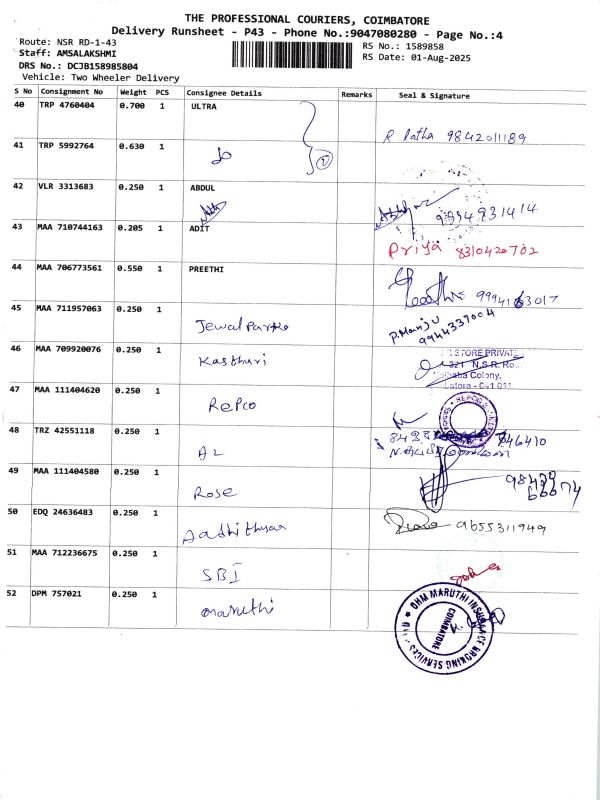 THE PROFESSIONAL COURIERS, COIMBATORE
Delivery Runsheet - P43 - Phone No.:9047080280 - Page No.:4
Route: NSR RD-1-43
Staff: AMSALAKSHMI
DRS No.: DCJB158985804
Vehicle: Two Wheeler Delivery
RS No.: 1589858
RS Date: 01-Aug-2025
S No Consignment No Weight PCS Consignee Details Remarks Seal & Signature
40 TRP 4760404 0.700 1 ULTRA
R Latha 9842011189
41 TRP 5992764 0.630 1
42 VLR 3313683 0.250 1 ABDUL
9994931414
43 MAA 710744163 0.205 1 ADIT
Priya 8310420702
44 MAA 706773561 0.550 1 PREETHI
45 MAA 711957063 0.250 1
P.Manju
9944337004
46 MAA 709920076 0.250 1 Kasthuri
STORE PRIVATE
321 N.S.R. Ro
Colony,
47 MAA 111404620 0.250 1 Repco
REPCO
48 TRZ 42551118 0.250 1 AL
49 MAA 111404580 0.250 1 Rose
50 EDQ 24636483 0.250 1
9655311949
51 MAA 712236675 0.250 1 SBI
52 DPM 757021 0.250 1 maruthi
OHM MARUTHI INSURANCE BROKING SERVICES
COIMBATORE